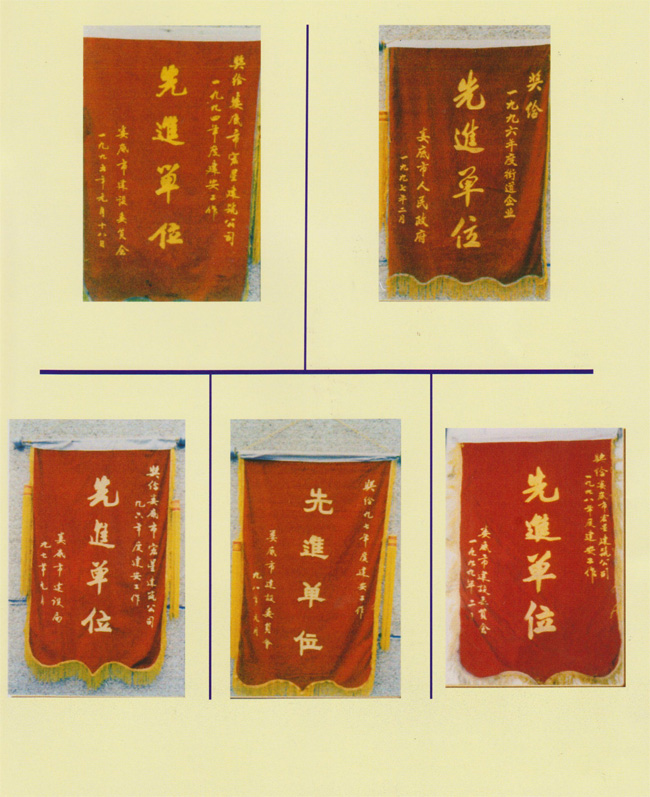 奖给娄底市宏星建筑公司
一九九四年度建安工作
先進单位
娄底市建设委员会
一九九五年元月十八日
奖给
一九九六年度街道企业
先進单位
娄底市人民政府
一九九七年二月
奖给娄底市宏星建筑公司
九六年度建安工作
先進单位
娄底市建设局
九七年元月
奖给九七年度建安工作
先進单位
娄底市建设委员会
九八年元月
奖给娄底市宏星建筑公司
一九九八年度建安工作
先進单位
娄底市建设委员会
一九九九年二